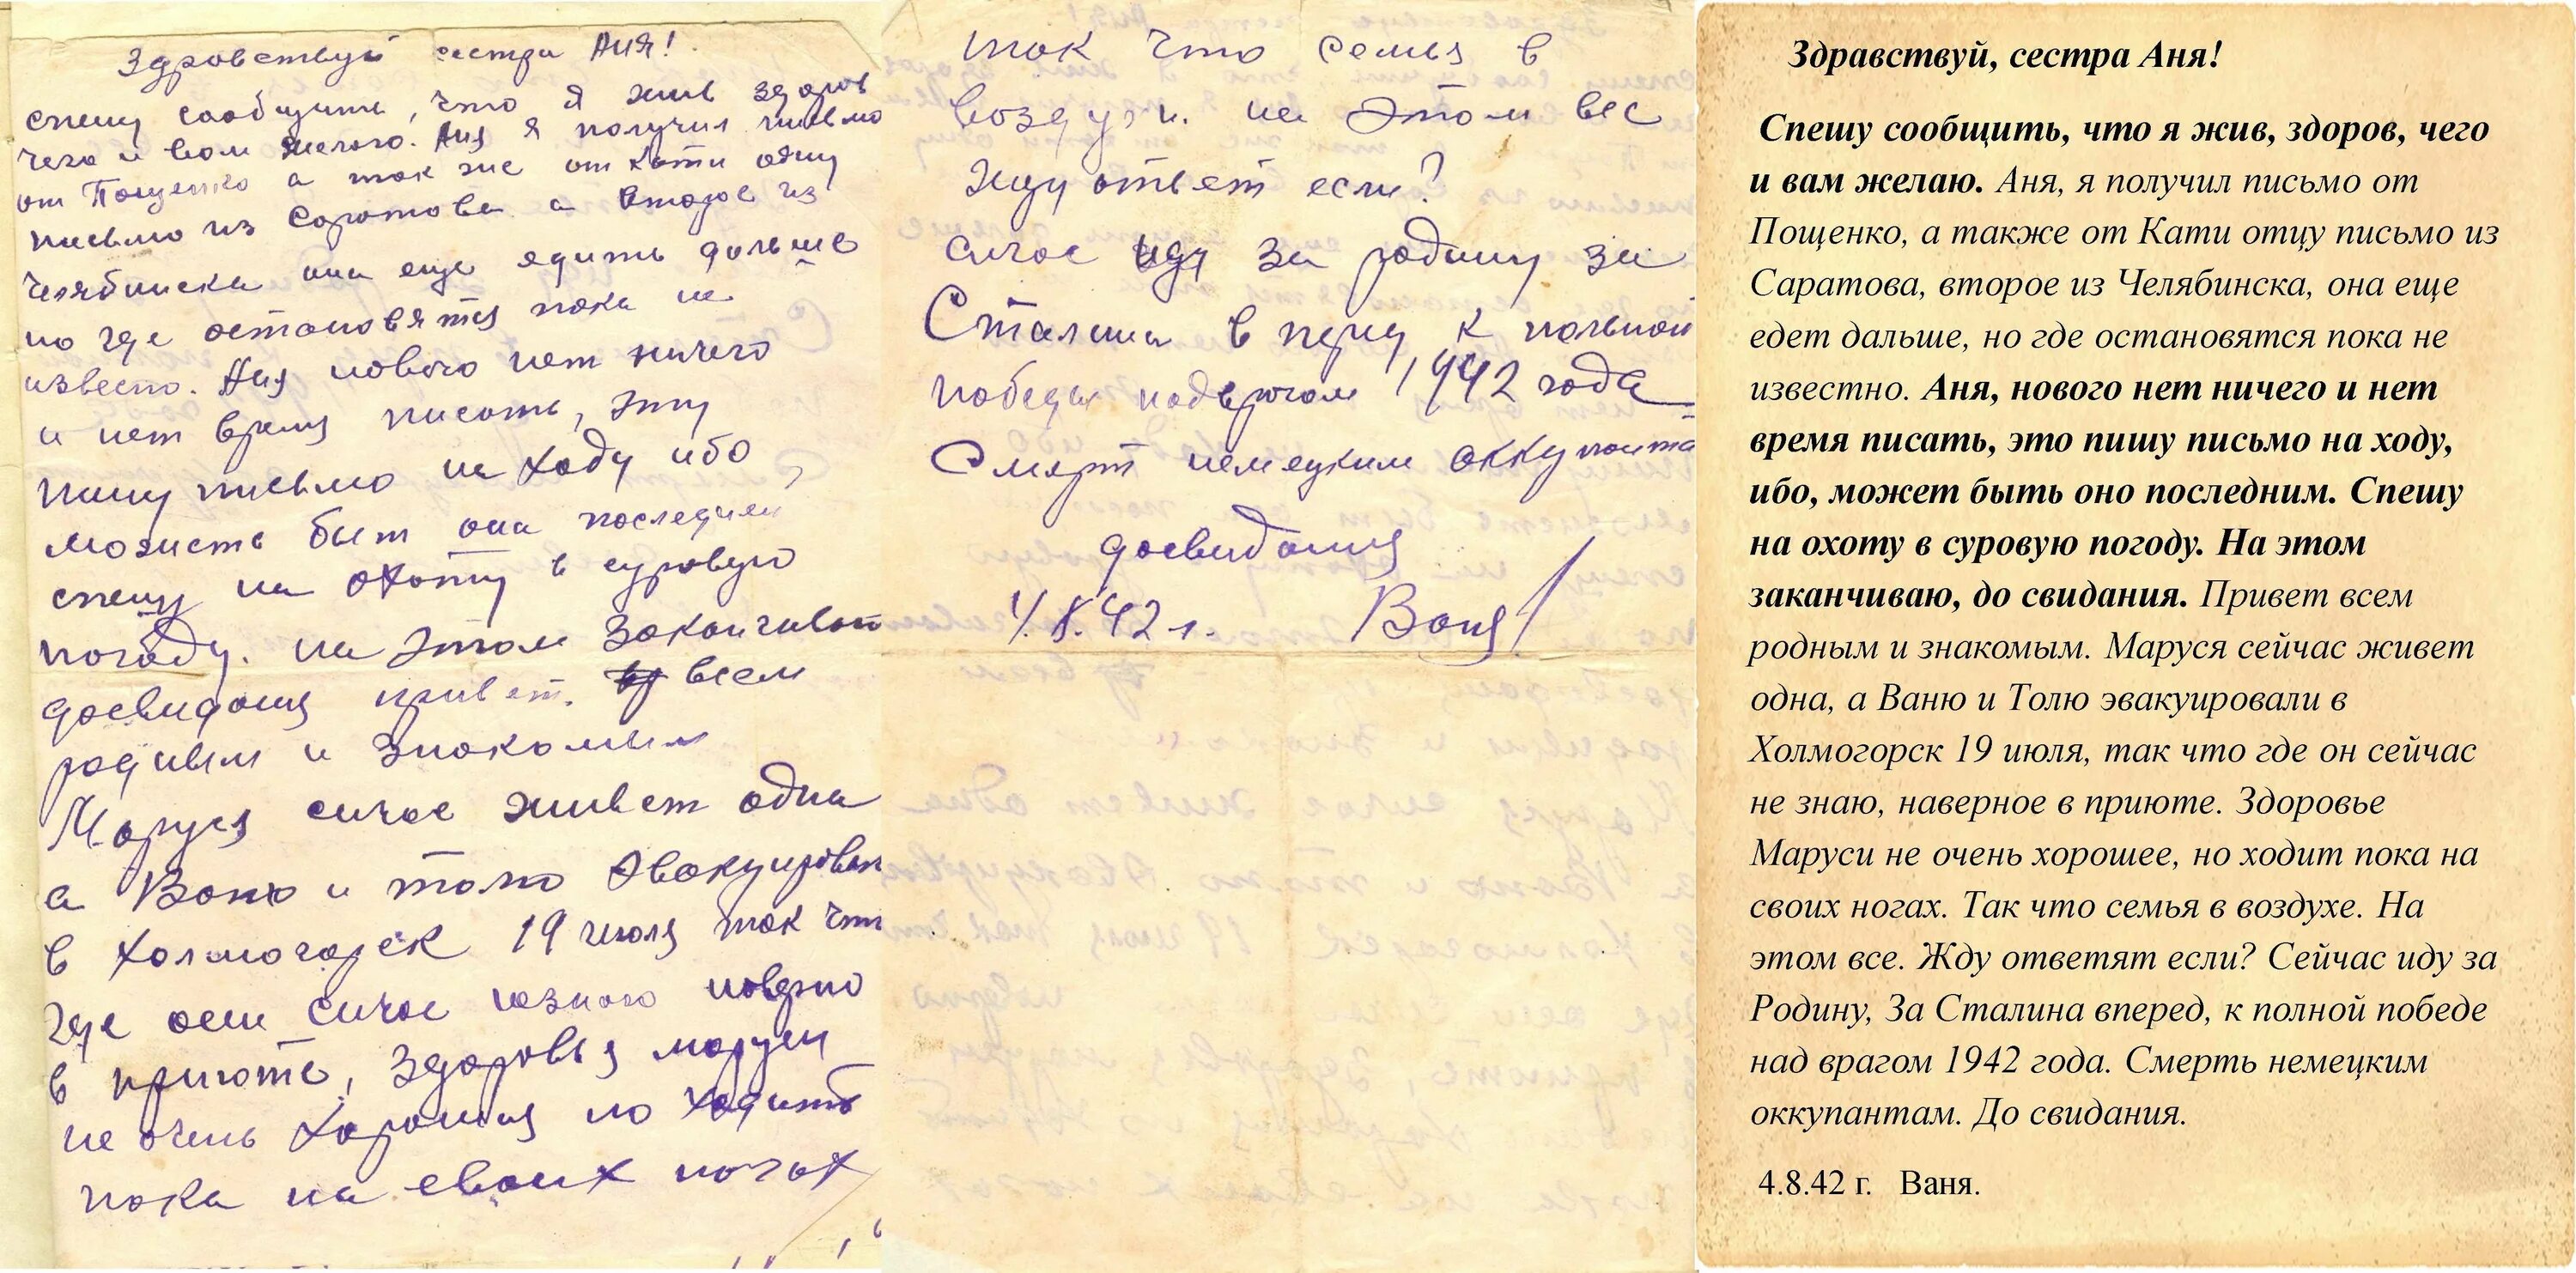 Здровствуй сестра Аня!
спешу сообщить, что я жив здоров
чего и вам желаю. Аня я получил письмо
от Пощенко а так же от Кати одну
письмо из Саротова а второе из
Челябинска она еще едить дальше
но где остановятся пока не
извесно. Аня нового нет ничего
и нет время писать, эту
пишу письмо на ходу ибо
можеть быт она последней
спешу на охоту в суровую
погоду. на этом заканчиваю
досвидания привет. всем
родным и знакомым
Маруся сичас живет одна
а Ваню и толю эвакуировали
в Холмогорск 19 июля так что
где они сичас незнаю наверно
в приюте, здоровья маруси
не очень хорошия но ходить
пока на своих ногах
так что семья в
воздухи. на этом все
жду ответет если?
сичас иду за родину за
Сталина в перед к полной
победы надврагом 1942 года
Смерт немецким оккупанта
досвидания
4.8.42 г. Ваня
Здравствуй, сестра Аня!
Спешу сообщить, что я жив, здоров, чего
и вам желаю. Аня, я получил письмо от
Пощенко, а также от Кати отцу письмо из
Саратова, второе из Челябинска, она еще
едет дальше, но где остановятся пока не
известно. Аня, нового нет ничего и нет
время писать, это пишу письмо на ходу,
ибо, может быть оно последним. Спешу
на охоту в суровую погоду. На этом
заканчиваю, до свидания. Привет всем
родным и знакомым. Маруся сейчас живет
одна, а Ваню и Толю эвакуировали в
Холмогорск 19 июля, так что где он сейчас
не знаю, наверное в приюте. Здоровье
Маруси не очень хорошее, но ходит пока на
своих ногах. Так что семья в воздухе. На
этом все. Жду ответят если? Сейчас иду за
Родину, За Сталина вперед, к полной победе
над врагом 1942 года. Смерть немецким
оккупантам. До свидания.
4.8.42 г. Ваня.